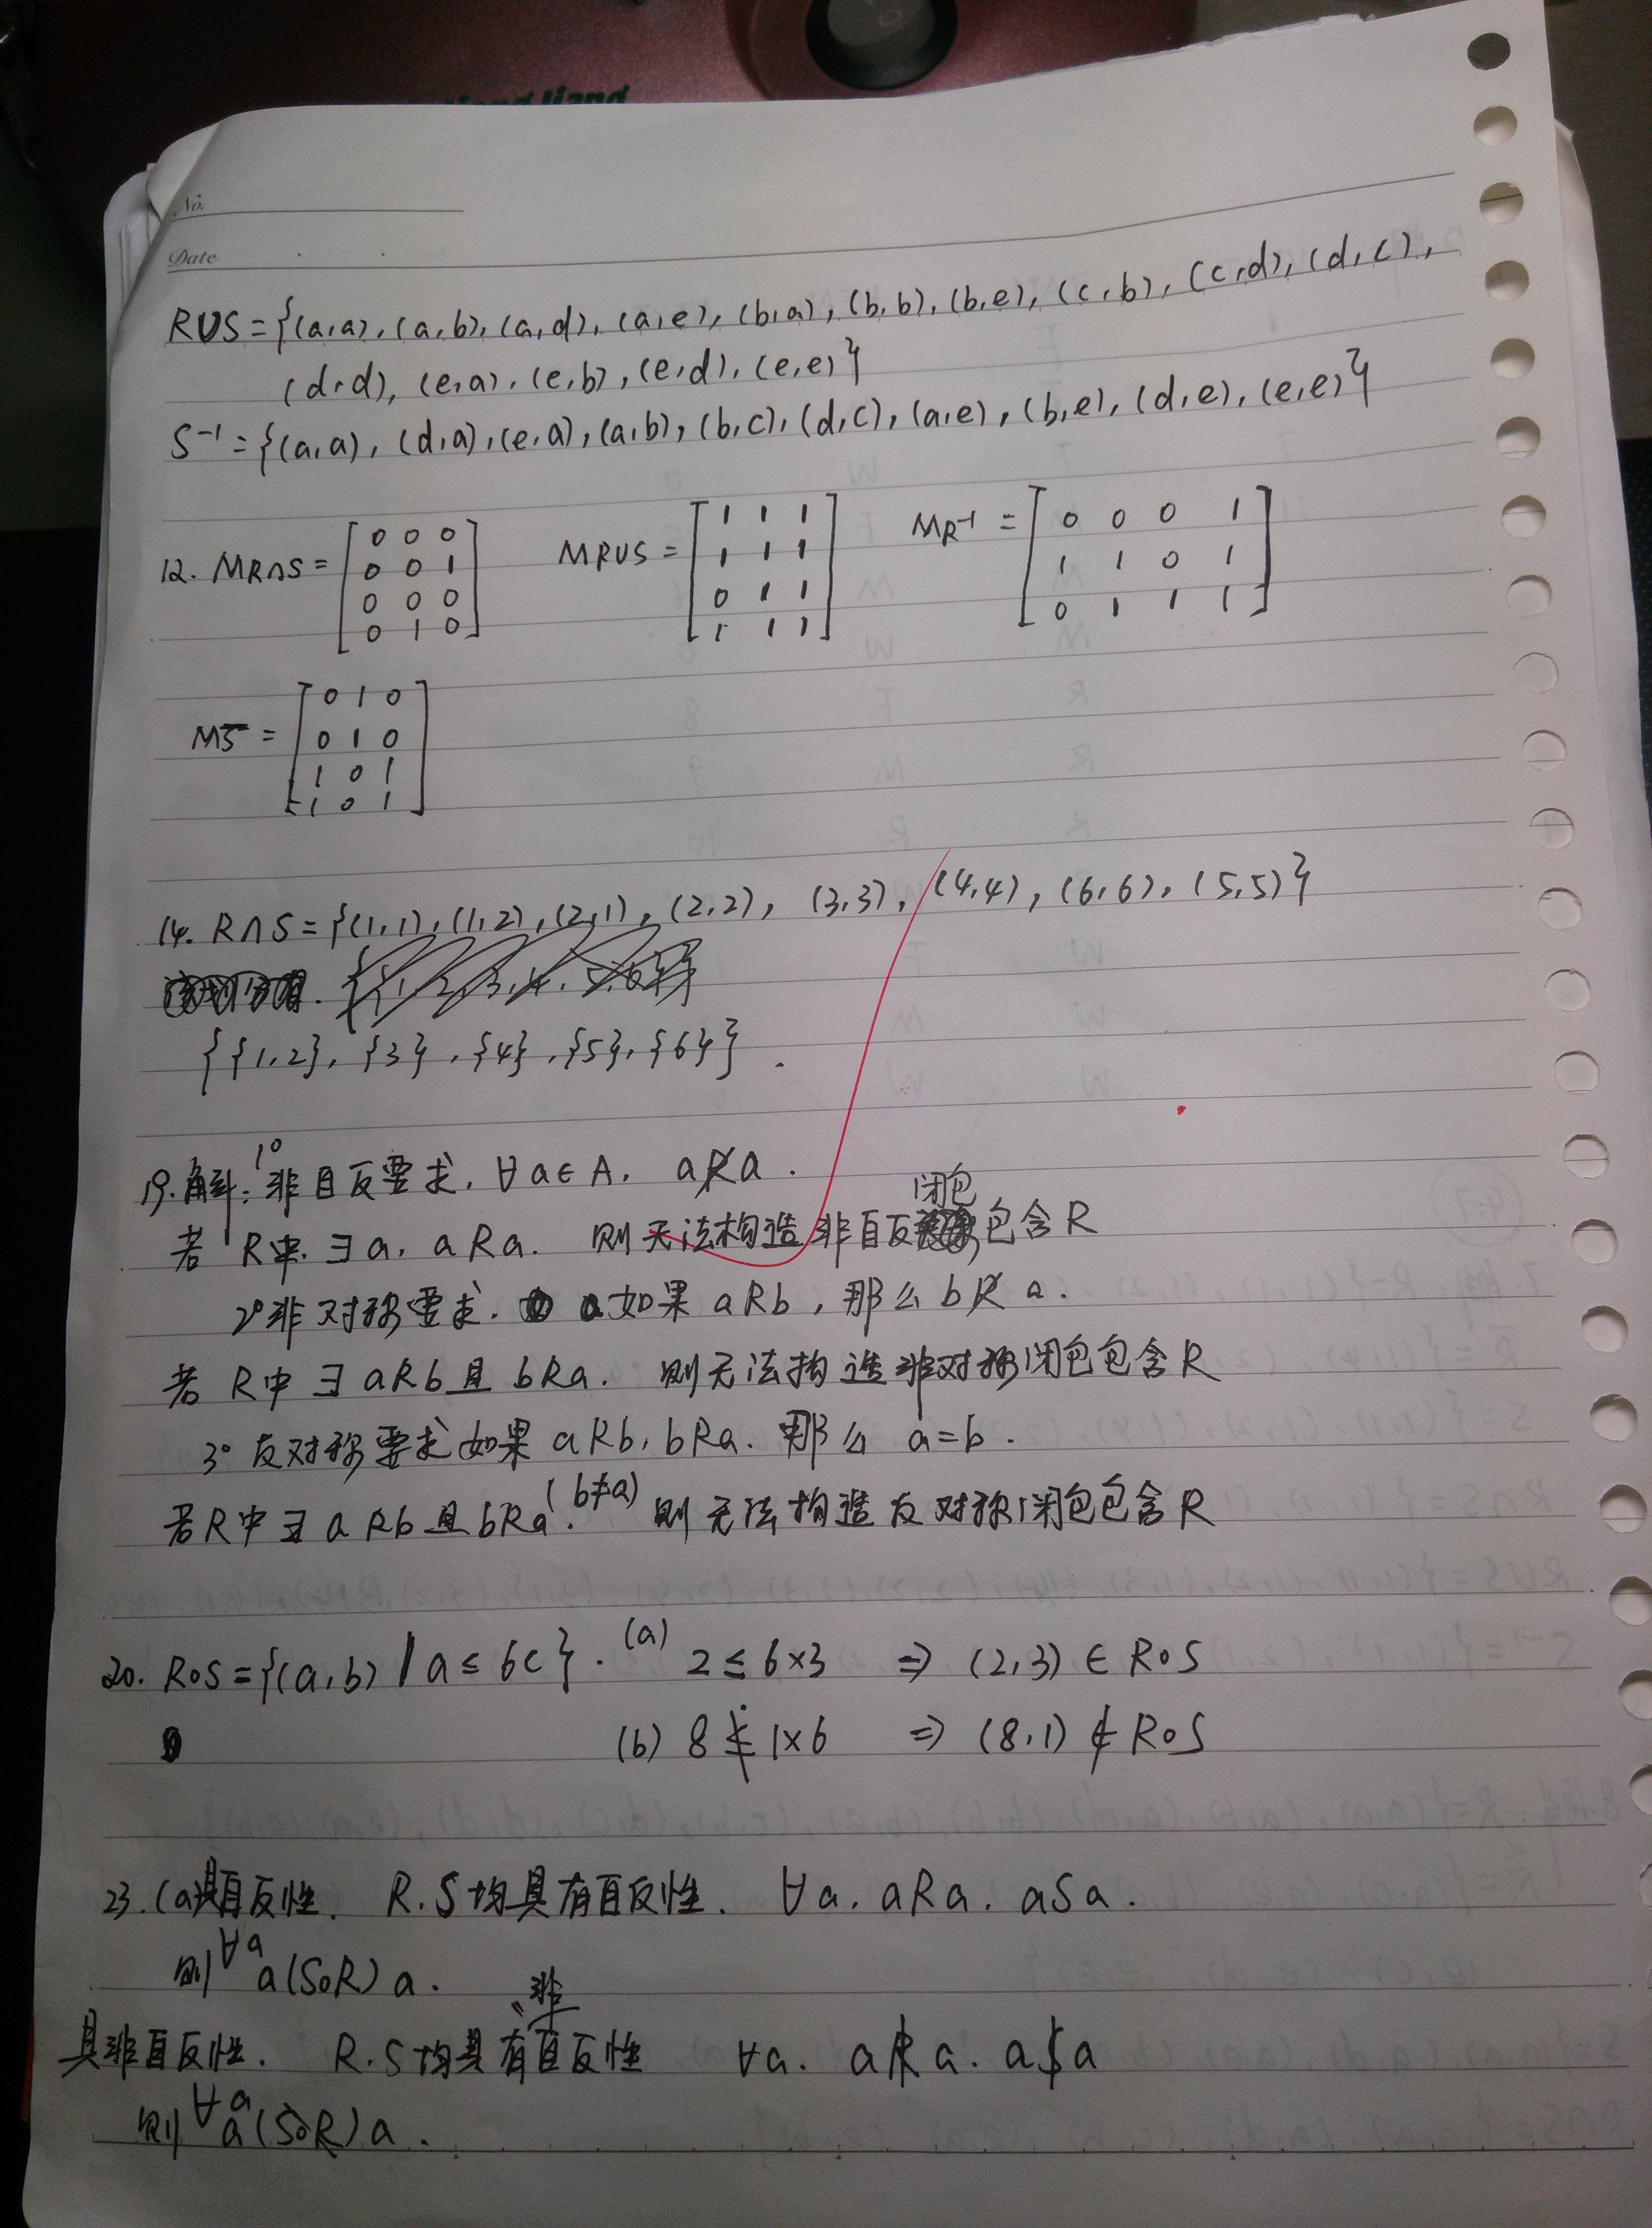 No.
Date
R∪S={(a,a),(a,b),(a,d),(a,e),(b,a),(b,b),(b,e),(c,b),(c,d),(d,c),
(d,d),(e,a),(e,b),(e,d),(e,e)}
S⁻¹={(a,a),(d,a),(e,a),(a,b),(b,c),(d,c),(a,e),(b,e),(d,e),(e,e)}
12. MR∩S = [0 0 0; 0 0 1; 0 0 0; 0 1 0] MR∪S = [1 1 1; 1 1 1; 0 1 1; 1 1 1] MR⁻¹ = [0 0 0 1; 1 1 0 1; 0 1 1 1]
MS̅ = [0 1 0; 0 1 0; 1 0 1; 1 0 1]
14. R∩S={(1,1),(1,2),(2,1),(2,2),(3,3),(4,4),(6,6),(5,5)}
{{1,2},{3},{4},{5},{6}}.
19.解: 1° 非自反要求, ∀a∈A, aR̸a.
若R中,∃a, aRa. 则无法构造非自反闭包包含R
2°非对称要求. 如果aRb,那么bR̸a.
若R中∃aRb且bRa. 则无法构造非对称闭包包含R
3°反对称要求如果aRb,bRa.那么a=b.
若R中∃aRb且bRa.(b≠a) 则无法构造反对称闭包包含R
20. R∘S={(a,b)|a≤6c}. (a) 2≤6×3 ⇒ (2,3)∈R∘S
(b) 8≰1×6 ⇒ (8,1)∉R∘S
23.(a)具自反性. R.S均具有自反性. ∀a. aRa. aSa.
则∀a a(S∘R)a.
具非自反性. R.S均具有非自反性 ∀a. aR̸a. aS̸a
则∀a a(S∘R)a.